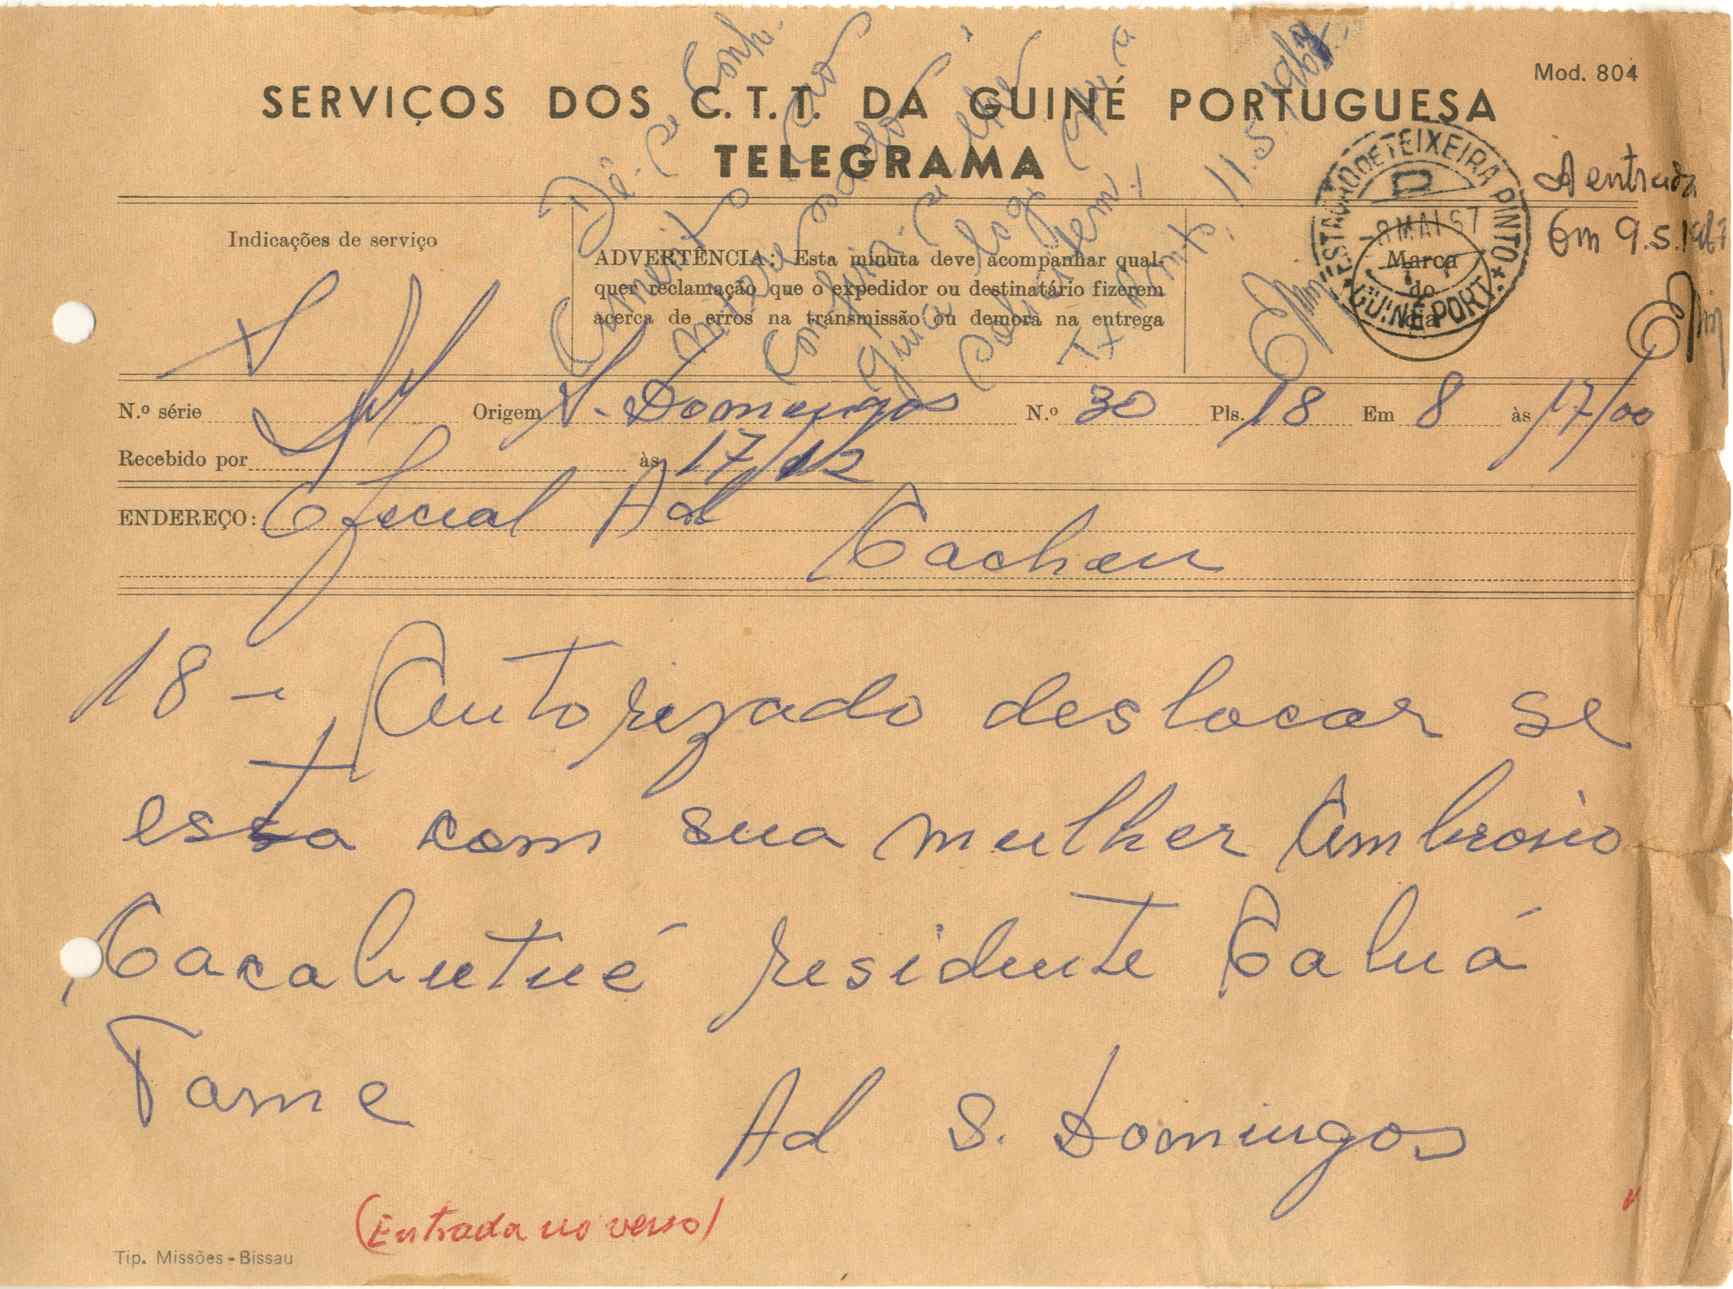 Mod. 804
SERVIÇOS DOS C.T.T. DA GUINÉ PORTUGUESA
TELEGRAMA
Dê-se conhe-
cimento ao
interessado e
guia logo que a
11.5.1967
ESTAÇÃO DE TEIXEIRA PINTO
-8 MAI 67
GUINÉ PORT.
A entrada
Em 9.5.1967
Indicações de serviço
ADVERTÊNCIA: Esta minuta deve acompanhar qual-
quer reclamação que o expedidor ou destinatário fizerem
acerca de erros na transmissão ou demora na entrega
Marca
do
dia
N.º série Origem S. Domingos N.º 30 Pls. 18 Em 8 às 17/00
Recebido por às 17/12
ENDEREÇO: Oficial Ad
Cacheu
18 - Autorizado deslocar se
esta com sua mulher Ambrosio
Cacabutué residente Caluá
Tame Ad S. Domingos
(Entrada no verso)
Tip. Missões - Bissau